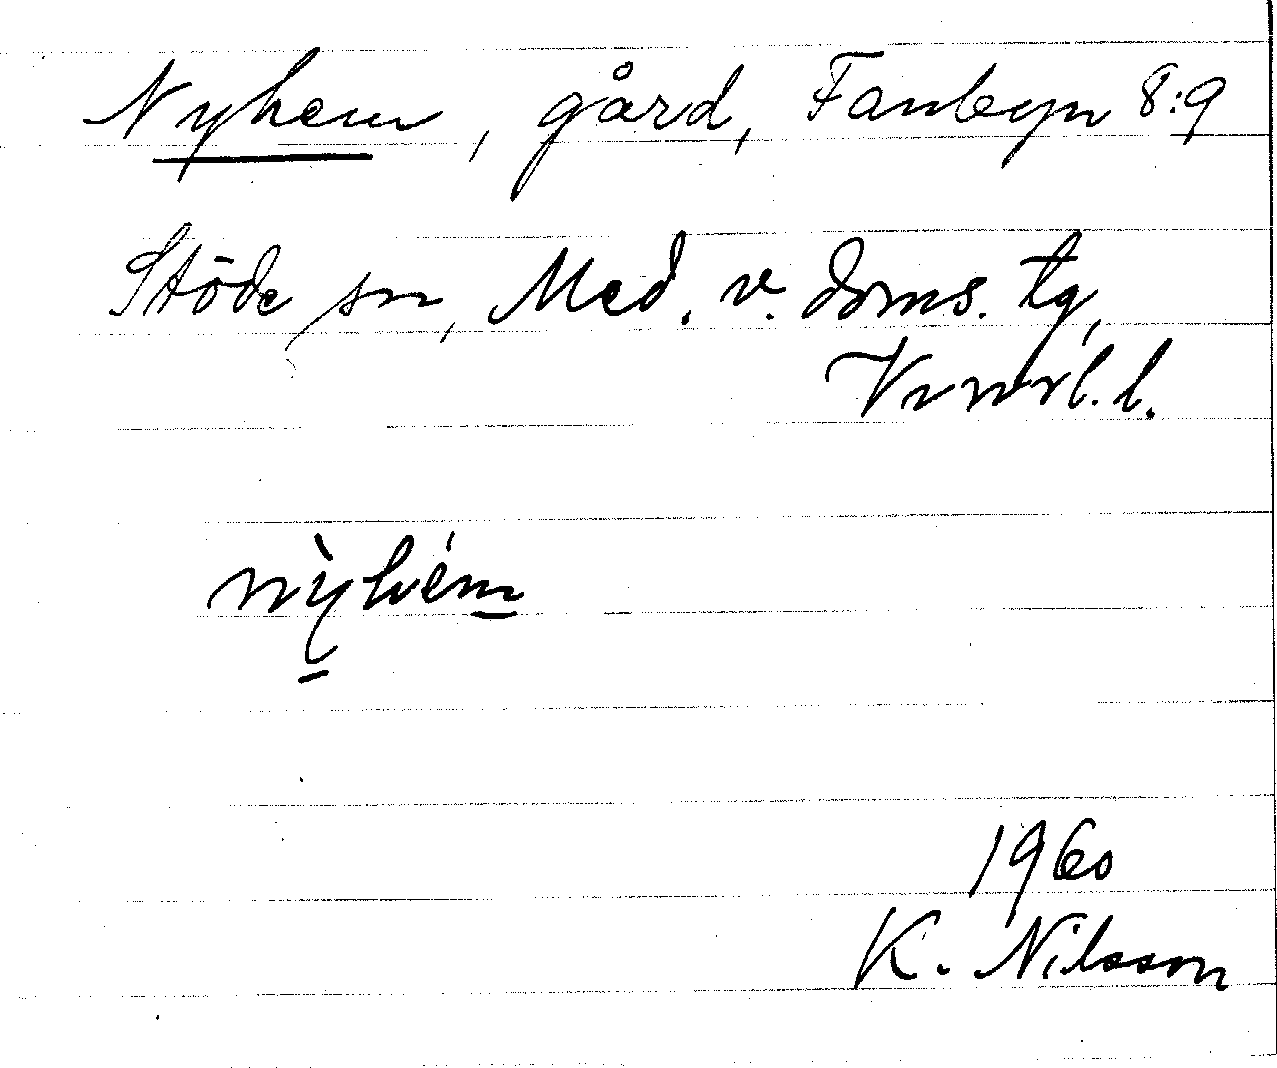 Nyhem, gård, Fanbyn 8:9
Stöde sn, Med. v. doms. tg,
Vnrl. l.
nỳhém
1960
K. Nilsson